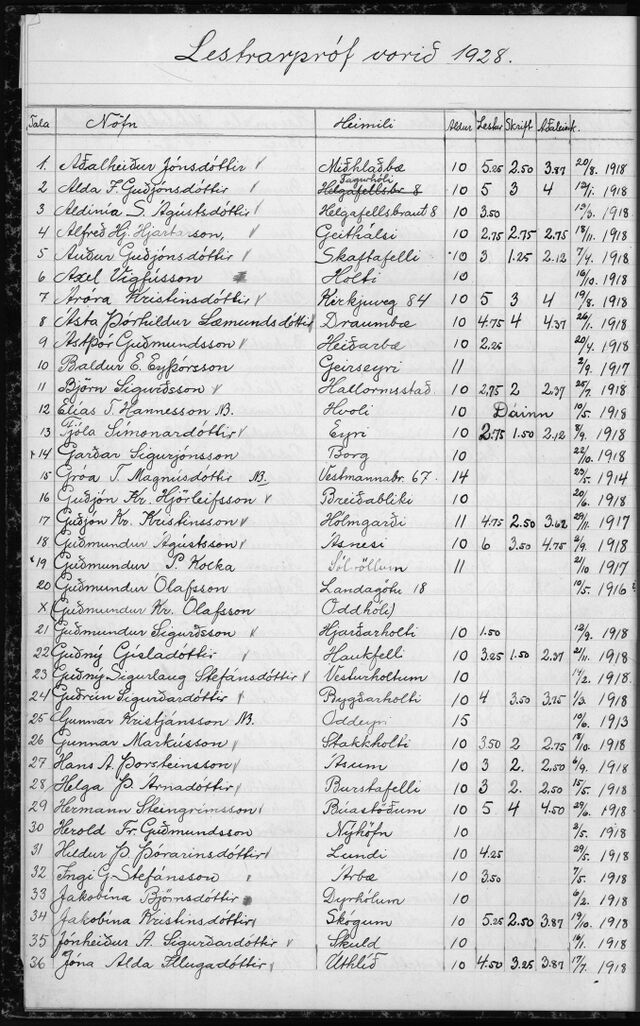 Lestrarpróf vorið 1928.
Tala Nöfn Heimili Aldur Lestur Skrift Aðaleink.
1. Aðalheiður Jónsdóttir v Miðhlaðbæ 10 5.25 2.50 3.87 20/8. 1918
Fagurhól
2 Alda F. Guðjónsdóttir v Helgafellsbr 8 10 5 3 4 12/1. 1918
3 Aldinía S. Ágústsdóttir v Helgafellsbraut 8 10 3.50 19/3. 1918
4 Alfreð Hj. Hjartarson, v Geithálsi 10 2.75 2.75 2.75 18/11. 1918
5 Auður Guðjónsdóttir v Skaftafelli 10 3 1.25 2.12 7/4. 1918
6 Axel Vigfússon Holti 10 16/10. 1918
7 Áróra Kristinsdóttir v Kirkjuveg 84 10 5 3 4 19/8. 1918
8 Ásta Þórhildur Sæmundsdóttir v Draumbæ 10 4.75 4 4.37 26/1. 1918
9 Ástþór Guðmundsson v Heiðarbæ 10 2.25 20/4. 1918
10 Baldur E. Eyþórsson Geirseyri 11 2/9. 1917
11 Björn Sigurðsson v Hallormsstað 10 2,75 2 2.37 25/7. 1918
12 Elías T. Hannesson NB. Hvoli 10 Dáinn 10/5. 1918
13 Fjóla Símonardóttir v Eyri 10 2.75 1.50 2.12 8/9. 1918
x 14 Garðar Sigurjónsson Borg 10 22/10. 1918
15 Gróa T. Magnúsdóttir NB. Vestmannabr. 67. 14 23/5. 1914
16 Guðjón Kr. Hjörleifsson v Breiðabliki 10 20/6. 1918
17 Guðjón Kr. Kristinsson v Hólmgarði 11 4.75 2.50 3.62 29/11. 1917
18 Guðmundur Ágústsson v Ásnesi 10 6 3.50 4.75 2/9. 1918
x 19 Guðmundur P. Kocka 11 21/10 1917
20 Guðmundur Ólafsson Landagötu 18 10/5. 1916
X Guðmundur Kr. Ólafsson Oddhól)
21 Guðmundur Sigurðsson v Hjarðarholti 10 1.50 12/9. 1918
22 Guðný Gísladóttir v Haukfelli 10 3.25 1.50 2.37 21/11. 1918
23 Guðný Sigurlaug Stefánsdóttir v Vesturholtum 10 14/2. 1918
24 Guðrún Sigurðardóttir v Byggðarholti 10 4 3.50 3.75 1/3. 1918
25 Gunnar Kristjánsson NB. Oddeyri 15 10/6 1913
26 Gunnar Markússon v Stakkholti 10 3.50 2 2.75 18/10. 1918
27 Hans A. Þorsteinsson v Ásum 10 3 2. 2.50 6/9. 1918
28 Helga Þ. Árnadóttir v Burstafelli 10 3 2. 2.50 15/5. 1918
29 Hermann Steingrímsson v Búastöðum 10 5 4 4.50 29/6. 1918
30 Herold Fr. Guðmundsson Nýhöfn 10 2/5. 1918
31 Hildur Þ. Þórarinsdóttir v Lundi 10 4.25 29/5. 1918
32 Ingi G. Stefánsson v Árbæ 10 3.50 7/5. 1918
33 Jakobína Björnsdóttir Dyrhólum 10 6/2. 1918
34 Jakobína Kristinsdóttir v Skógum 10 5.25 2.50 3.87 19/10. 1918
35 Jónheiður Á. Sigurðardóttir v Skuld 10 16/1. 1918
36 Jóna Alda Illugadóttir v Úthlíð 10 4.50 3.25 3.87 17/7. 1918